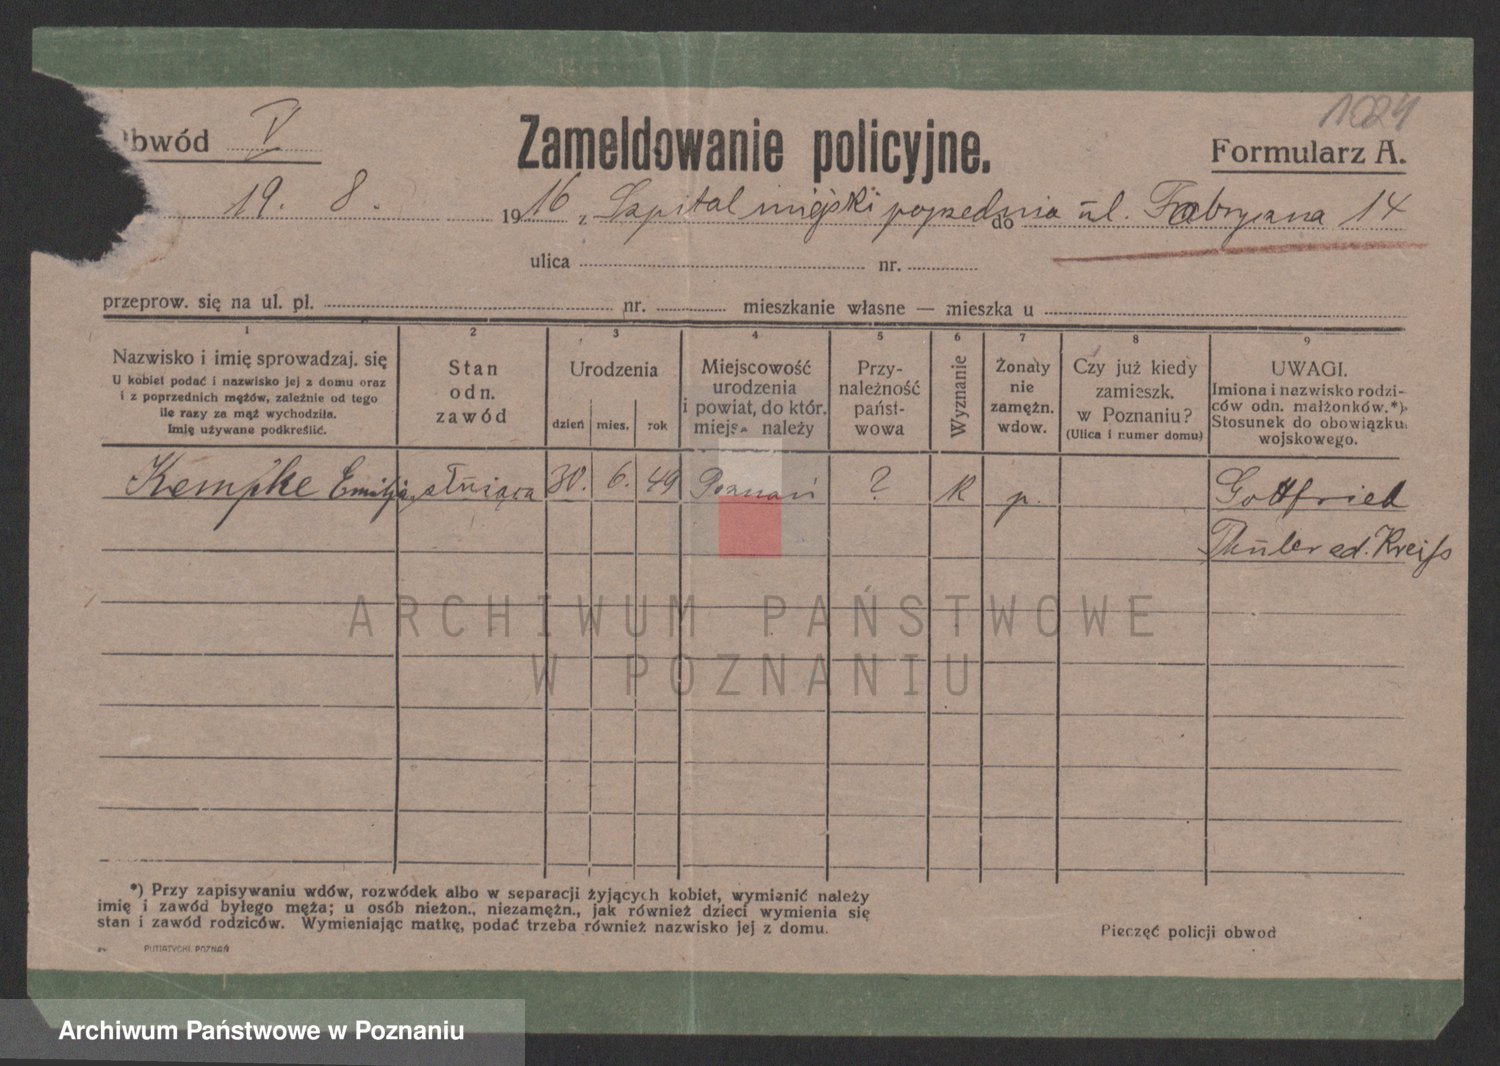 1024
Obwód V
Zameldowanie policyjne.
Formularz A.
19. 8. 1916 z Szpital miejski poprzednia do ul. Fabryczna 14
ulica nr.
przeprow. się na ul. pl. nr. mieszkanie własne — mieszka u
1 2 3 4 5 6 7 8 9
Nazwisko i imię sprowadzaj. się
U kobiet podać i nazwisko jej z domu oraz
i z poprzednich mężów, zależnie od tego
ile razy za mąż wychodziła.
Imię używane podkreślić.
Stan
odn.
zawód
Urodzenia
dzień mies. rok
Miejscowość
urodzenia
i powiat, do któr.
miejs. należy
Przy-
należność
państ-
wowa
Wyznanie
Żonaty
nie
zamężn.
wdow.
Czy już kiedy
zamieszk.
w Poznaniu?
(Ulica i numer domu)
UWAGI.
Imiona i nazwisko rodzi-
ców odn. małżonków.*)
Stosunek do obowiązku
wojskowego.
Kempke Emilja służąca 30. 6. 49 Poznań ? K p. Gottfried
Kreiss
ARCHIWUM PAŃSTWOWE
W POZNANIU
*) Przy zapisywaniu wdów, rozwódek albo w separacji żyjących kobiet, wymienić należy
imię i zawód byłego męża; u osób nieżon., niezamężn., jak również dzieci wymienia się
stan i zawód rodziców. Wymieniając matkę, podać trzeba również nazwisko jej z domu.
Pieczęć policji obwod
PUTIATYCKI, POZNAŃ
Archiwum Państwowe w Poznaniu